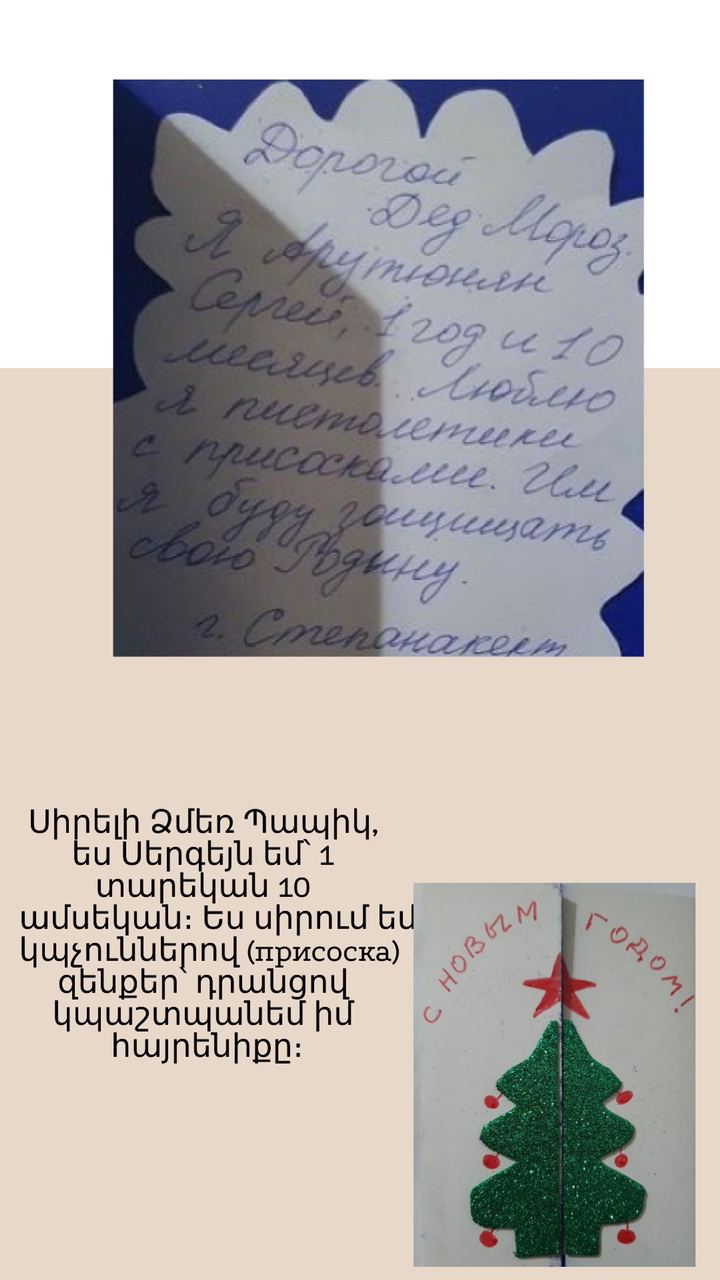 Дорогой
Дед Мороз.
Я Арутюнян
Сергей, 1 год и 10
месяцев. Люблю
я пистолетики
с присосками. Им
я буду защищать
свою Родину.
г. Степанакерт
Սիրելի Ձմեռ Պապիկ,
ես Սերգեյն եմ՝ 1
տարեկան 10
ամսեկան։ Ես սիրում եմ
կպչուններով (присоска)
զենքեր՝ դրանցով
կպաշտպանեմ իմ
հայրենիքը։
С НОВЫМ ГОДОМ!